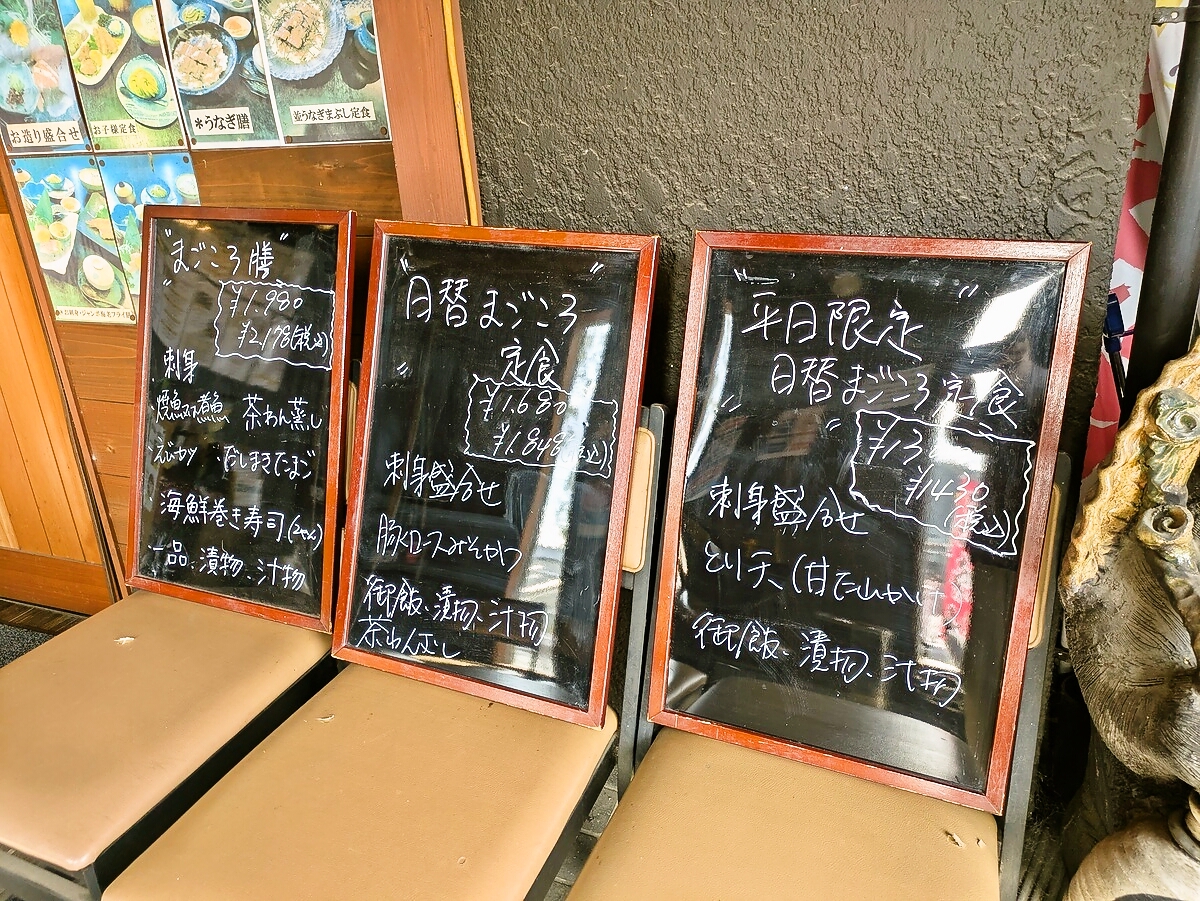 お造り盛合せ
お子様定食
*うなぎ膳
並うなぎまぶし定食
"まごころ膳"
¥1.980
¥2.178(税込)
刺身
焼魚又ハ煮魚 茶わん蒸し
・だしまきたまご
海鮮巻き寿司
一品、漬物、汁物
"日替まごころ"
定食
¥1.680
¥1.848(税込)
刺身盛合せ
豚ロースみそかつ
御飯、漬物、汁物
茶わんむし
"平日限定"
日替まごころ定食
¥1430
(税込)
刺身盛合せ
とり天(甘だれかけ)
御飯、漬物、汁物